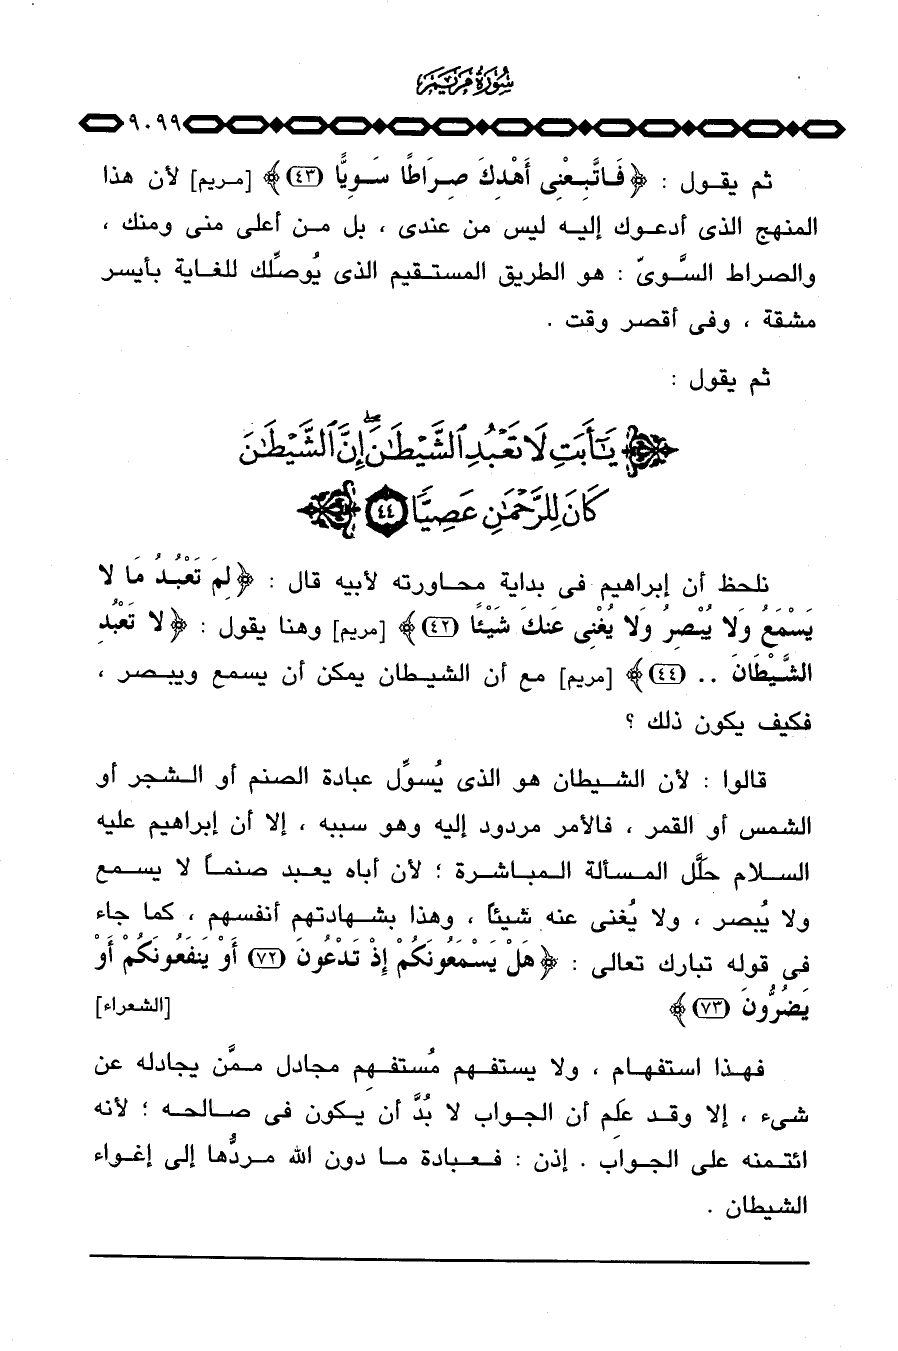 سُورَةُ مَرْيَمَ
٩٠٩٩
ثم يقول : ﴿ فَاتَّبِعْنِى أَهْدِكَ صِرَاطًا سَوِيًّا (٤٣) ﴾ [مريم] لأن هذا
المنهج الذى أدعوك إليه ليس من عندى ، بل من أعلى منى ومنك ،
والصراط السَّوىّ : هو الطريق المستقيم الذى يُوصِّلك للغاية بأيسر
مشقة ، وفى أقصر وقت .
ثم يقول :
﴿ يَٰٓأَبَتِ لَا تَعْبُدِ ٱلشَّيْطَٰنَۖ إِنَّ ٱلشَّيْطَٰنَ
كَانَ لِلرَّحْمَٰنِ عَصِيًّا ٤٤ ﴾
نلحظ أن إبراهيم فى بداية محاورته لأبيه قال : ﴿ لِمَ تَعْبُدُ مَا لا
يَسْمَعُ وَلا يُبْصِرُ وَلا يُغْنِى عَنكَ شَيْئًا (٤٢) ﴾ [مريم] وهنا يقول : ﴿ لا تَعْبُدِ
الشَّيْطَانَ .. (٤٤) ﴾ [مريم] مع أن الشيطان يمكن أن يسمع ويبصر ،
فكيف يكون ذلك ؟
قالوا : لأن الشيطان هو الذى يُسوِّل عبادة الصنم أو الشجر أو
الشمس أو القمر ، فالأمر مردود إليه وهو سببه ، إلا أن إبراهيم عليه
السلام حلَّل المسألة المباشرة ؛ لأن أباه يعبد صنماً لا يسمع
ولا يُبصر ، ولا يُغنى عنه شيئاً ، وهذا بشهادتهم أنفسهم ، كما جاء
فى قوله تبارك تعالى : ﴿ هَلْ يَسْمَعُونَكُمْ إِذْ تَدْعُونَ (٧٢) أَوْ يَنفَعُونَكُمْ أَوْ
يَضُرُّونَ (٧٣) ﴾ [الشعراء]
فهذا استفهام ، ولا يستفهم مُستفهم مجادل ممَّن يجادله عن
شىء ، إلا وقد علِم أن الجواب لا بُدَّ أن يكون فى صالحه ؛ لأنه
ائتمنه على الجواب . إذن : فعبادة ما دون الله مردُّها إلى إغواء
الشيطان .